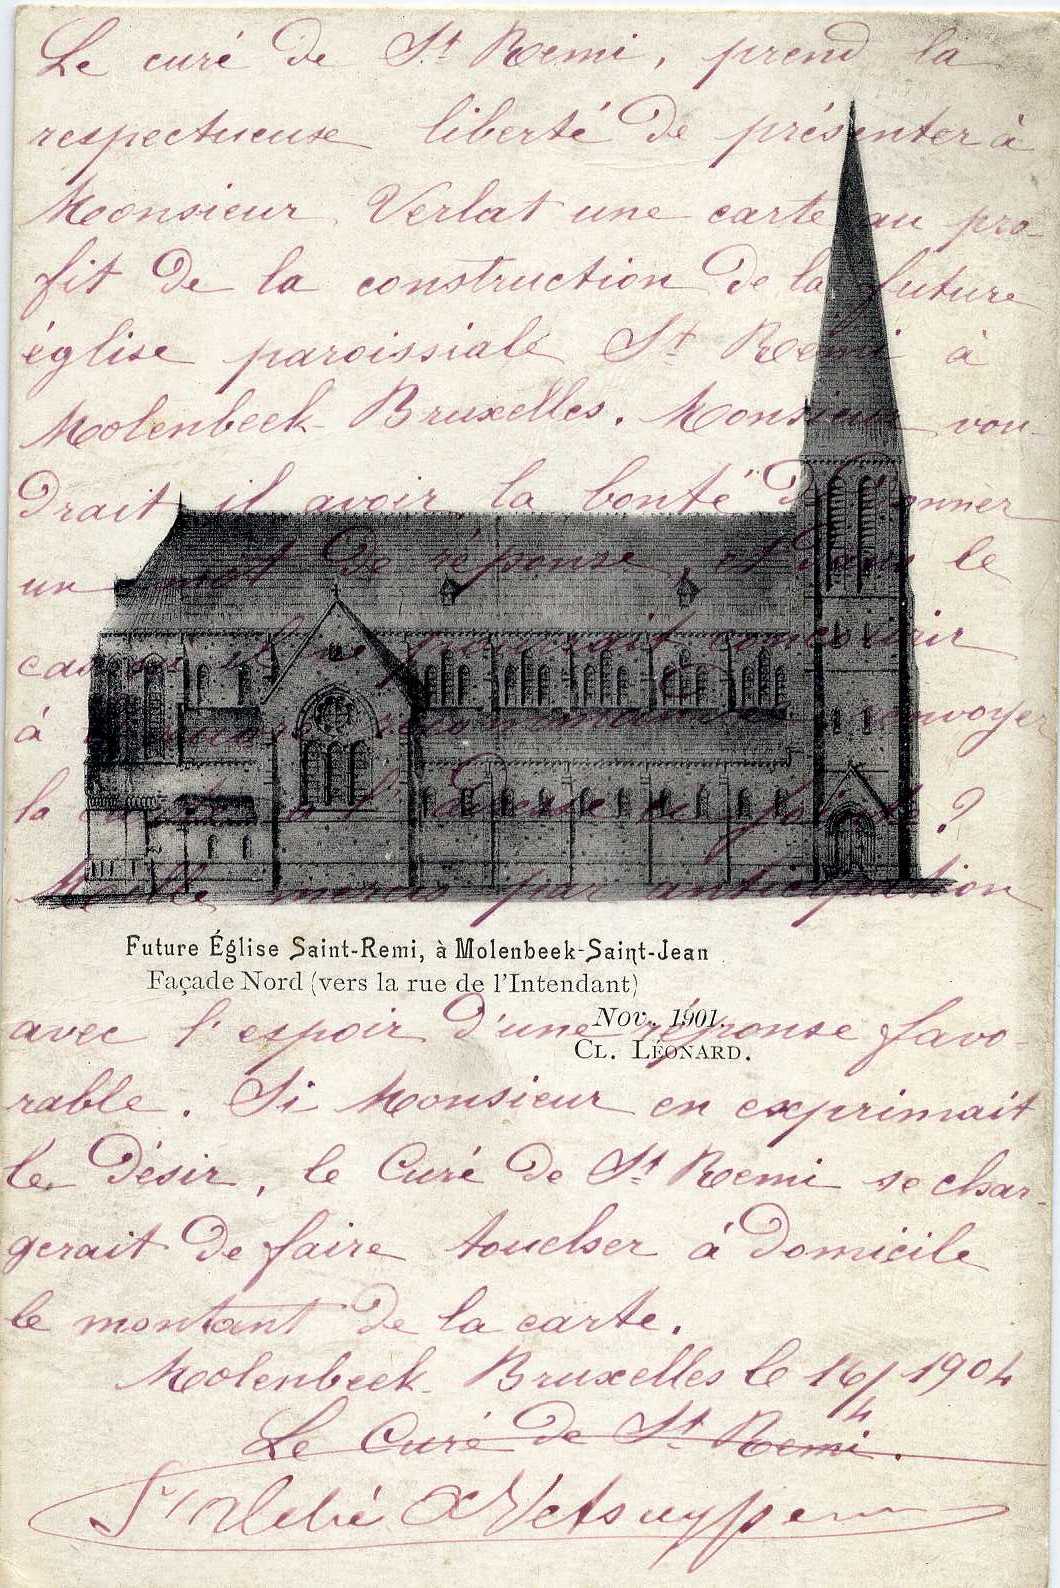 Le curé de St Remi, prend la
respectueuse liberté de présenter à
Monsieur Verlat une carte au pro-
fit de la construction de la future
église paroissiale St Remi à
Molenbeek-Bruxelles. Monsieur vou-
drait il avoir la bonté de donner
un mot de réponse, et dans le
cas où il ne pourrait concourir
à renvoyer
la carte à l'adresse ci jointe ?
Mille mercis par anticipation
Future Église Saint-Remi, à Molenbeek-Saint-Jean
Façade Nord (vers la rue de l'Intendant)
Nov. 1901.
CL. LÉONARD.
avec l'espoir d'une réponse favo-
rable. Si Monsieur en exprimait
le désir, le Curé de St Remi se char-
gerait de faire toucher à domicile
le montant de la carte.
Molenbeek-Bruxelles le 16/4 1904
Le Curé de St Remi.